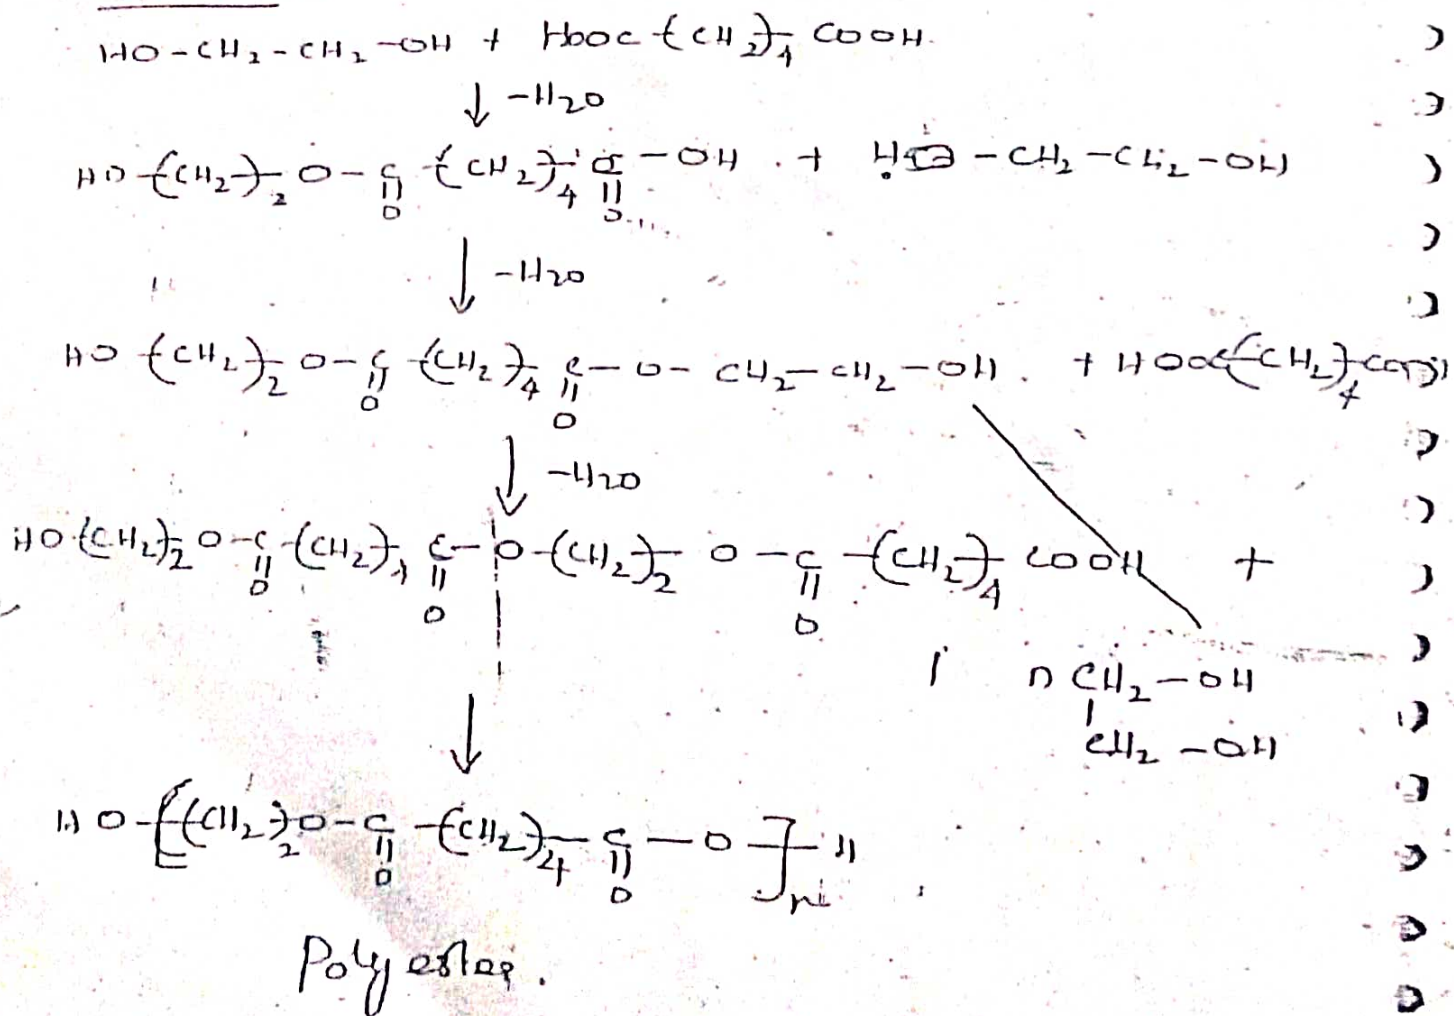 HO-CH₂-CH₂-OH + HOOC-(CH₂)₄-COOH
↓ -H₂O
HO-(CH₂)₂-O-C(=O)-(CH₂)₄-C(=O)-OH + HO-CH₂-CH₂-OH
↓ -H₂O
HO-(CH₂)₂-O-C(=O)-(CH₂)₄-C(=O)-O-CH₂-CH₂-OH + HOOC-(CH₂)₄-COOH
↓ -H₂O
HO-(CH₂)₂-O-C(=O)-(CH₂)₄-C(=O)-O-(CH₂)₂-O-C(=O)-(CH₂)₄-COOH +
n CH₂-OH
CH₂-OH
↓
HO-[(CH₂)₂-O-C(=O)-(CH₂)₄-C(=O)-O]n-H
Polyester.